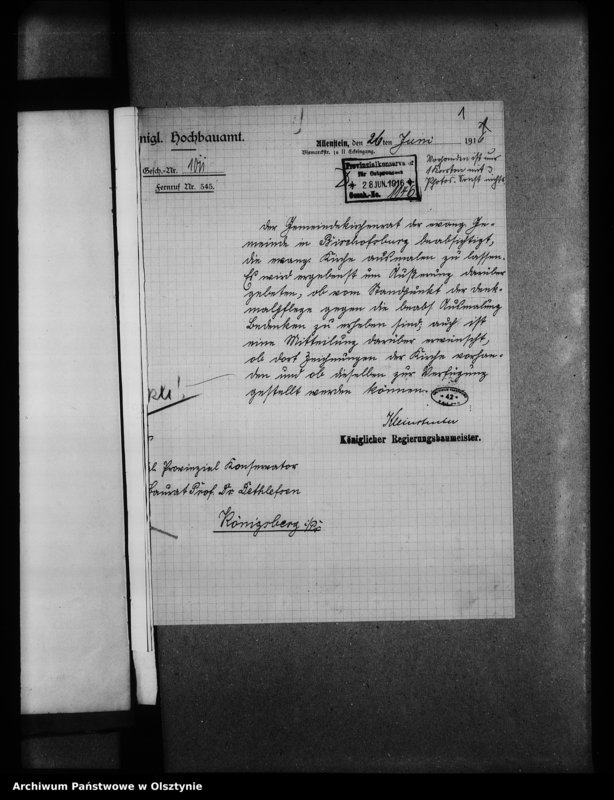 1
Königl. Hochbauamt.
Allenstein, den 26ten Juni 1916
Bismarckstr. 
Gesch.-Nr.
Fernruf Nr. 545.
Provinzialkonservator
für Ostpreussen
28 JUN. 1916
Gesch.-No.
Vorhanden ist nur
1 Karten mit 3
Photos. Sonst nichts
Der Gemeindekirchenrat der evang. Ge-
meinde in Bischofsburg beabsichtigt,
die evang. Kirche ausmalen zu lassen.
Es wird ergebenst um Äußerung darüber
gebeten, ob vom Standpunkt der Denk-
malpflege gegen die beabs. Ausmalung
Bedenken zu erheben sind; auch ist
eine Mitteilung darüber erwünscht,
ob dort Zeichnungen der Kirche vorhan-
den und ob dieselben zur Verfügung
gestellt werden können.
42
Königlicher Regierungsbaumeister.
Provinzial Konservator
Baurat Prof. Dr. Dethlefsen
Königsberg i/Pr
Archiwum Państwowe w Olsztynie